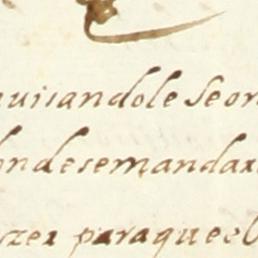 auisandole Seor
ondesemandar
zer paraqueel